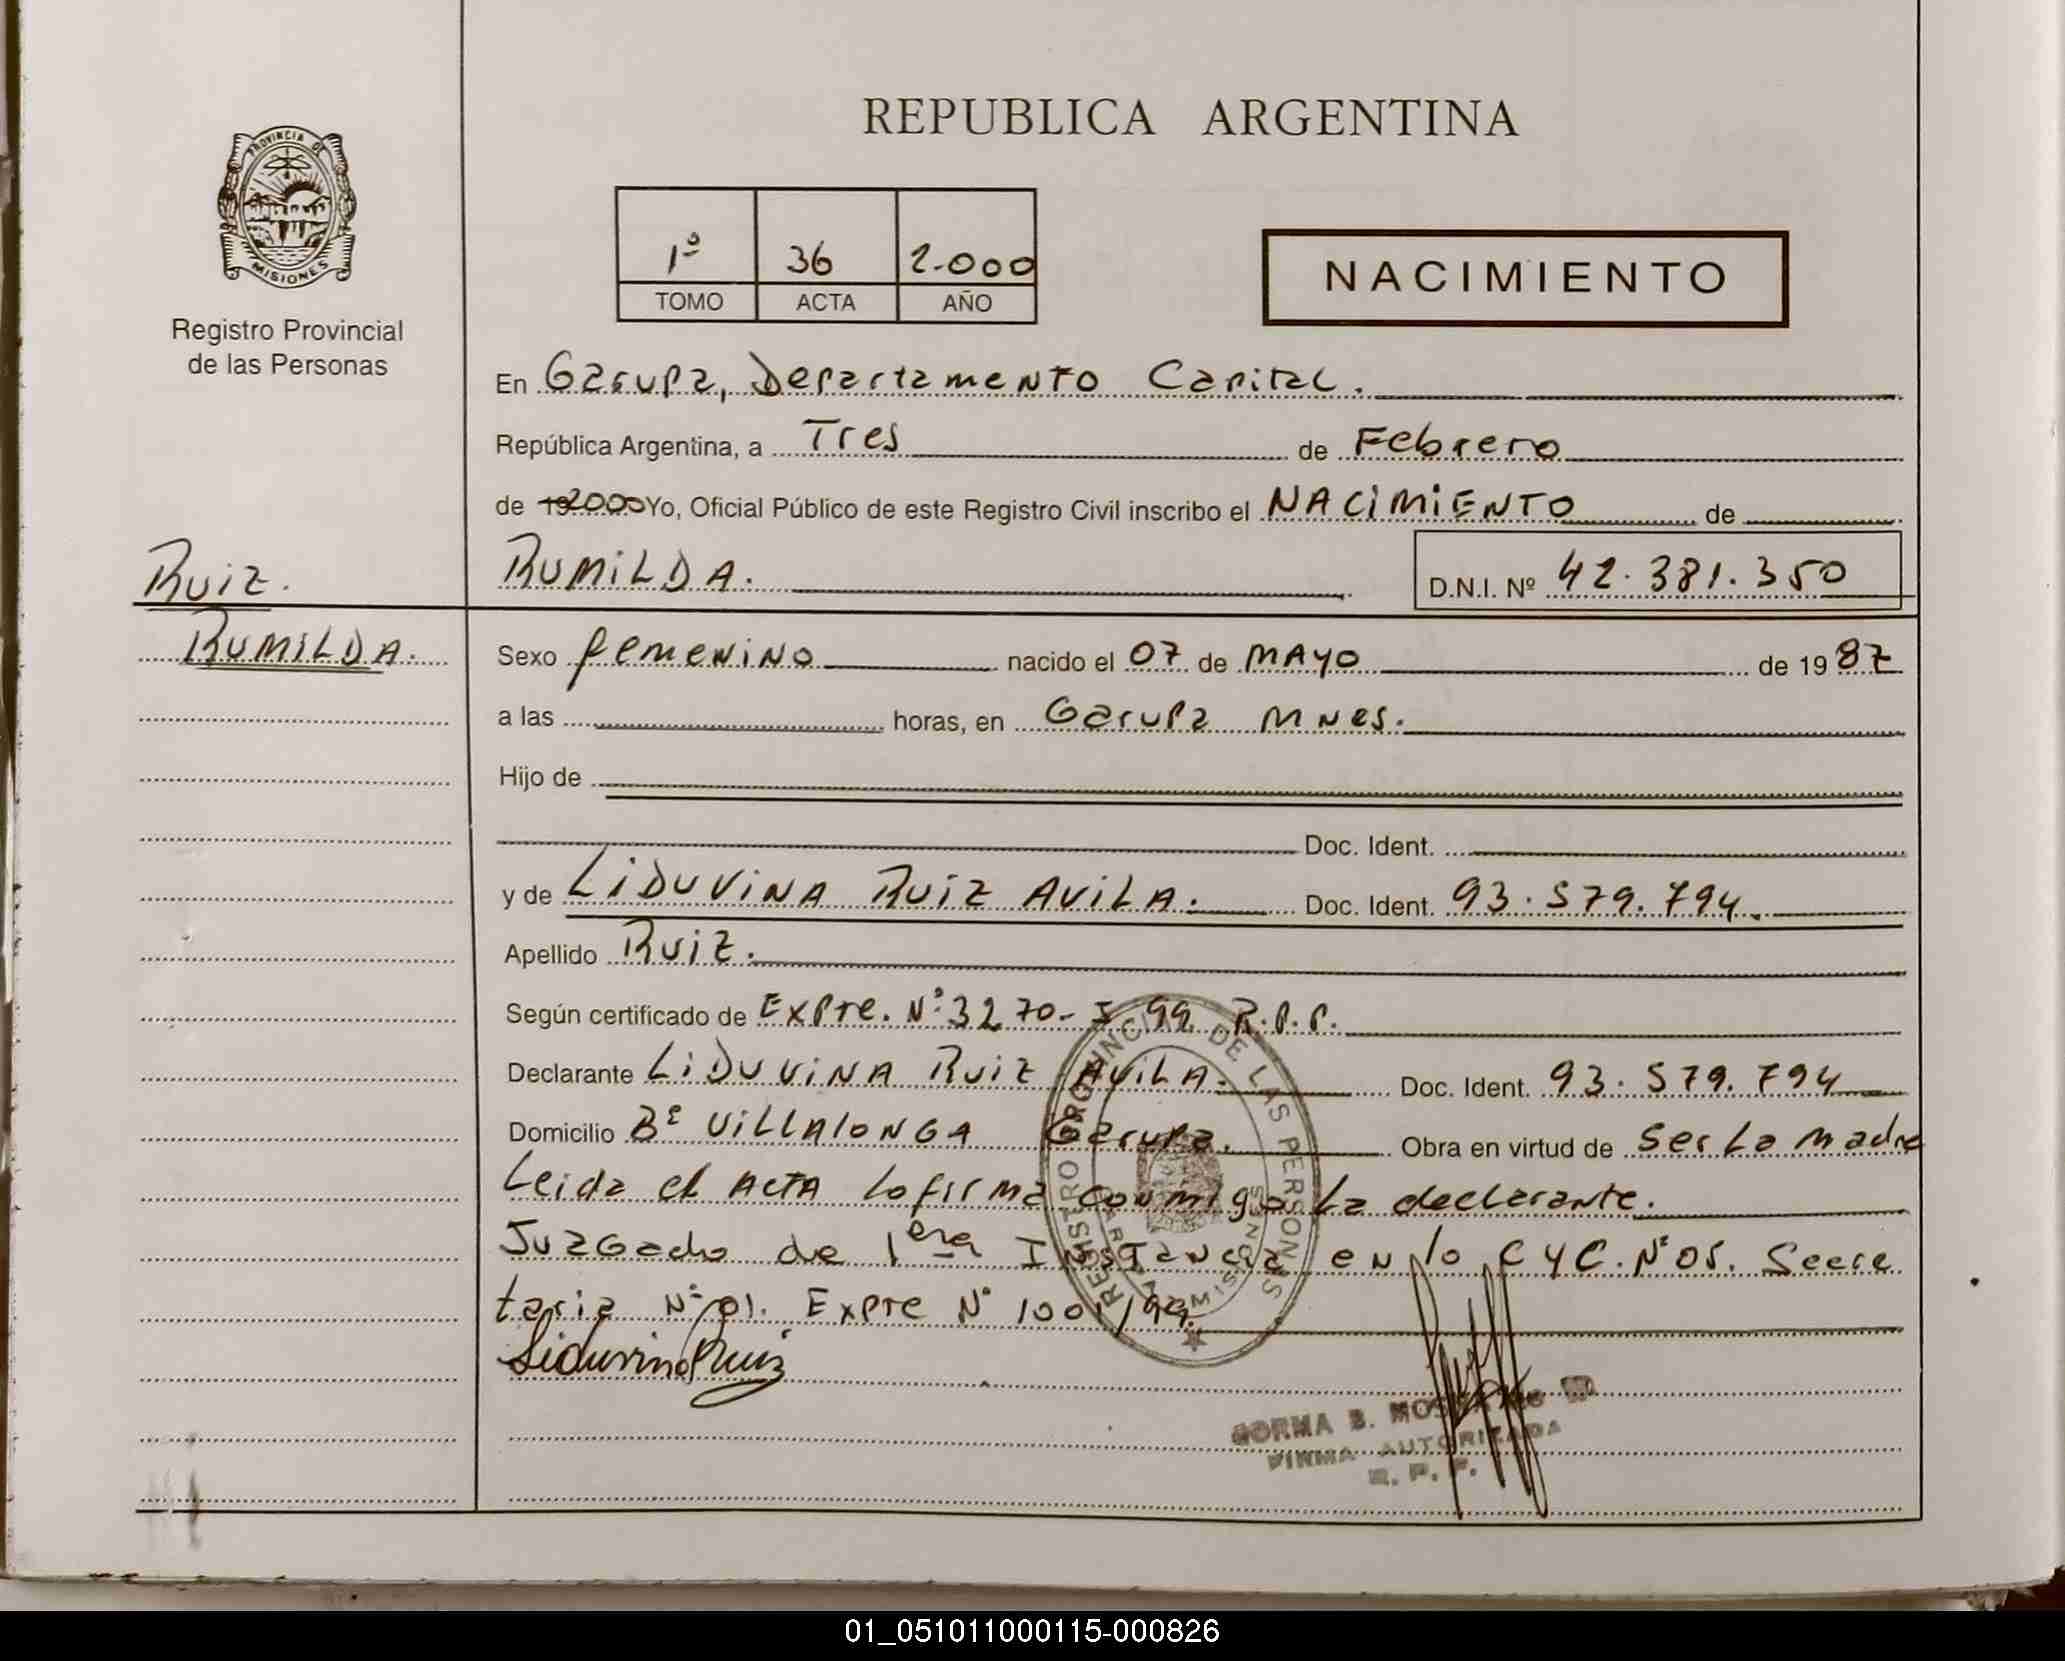 REPUBLICA ARGENTINA
PROVINCIA DE
MISIONES
Registro Provincial
de las Personas
1º 36 2.000
TOMO ACTA AÑO
NACIMIENTO
En Garupa, Departamento Capital.
República Argentina, a Tres de Febrero
de 19 2000 Yo, Oficial Público de este Registro Civil inscribo el NACIMIENTO de
Ruiz. RUMILDA. D.N.I. Nº 42.381.350
RUMILDA. Sexo femenino nacido el 07 de MAYO de 19 87
a las horas, en Garupa Mnes.
Hijo de
Doc. Ident.
y de LIDUVINA RUIZ AVILA. Doc. Ident. 93.579.794.
Apellido Ruiz.
Según certificado de Expte. Nº 3270-I 99 R.P.P.
Declarante LIDUVINA RUIZ AVILA. Doc. Ident. 93.579.794
Domicilio Bº VILLALONGA Garupa. Obra en virtud de Ser La madre
Leida el ACTA La firma conmigo La declarante.
Juzgado de 1era Instancia en lo C Y C. Nº 05. Secre
taria Nº 01. Expte Nº 1001/99.
REGISTRO PROVINCIAL DE LAS PERSONAS
MISIONES
Liduvina Ruiz
FIRMA AUTORIZADA
R. P. P.
01_051011000115-000826